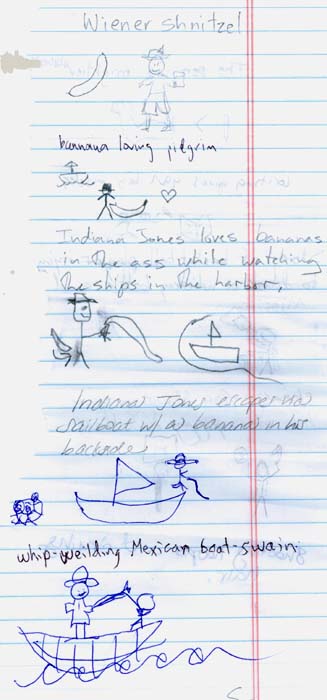 Wiener shnitzel
bannana loving pilgrim
Indiana Jones loves bananas
in the ass while watching
the ships in the harbor.
Indiana Jones escapes via
sailboat w/ a banana in his
backside.
whip-weilding Mexican boat-swain